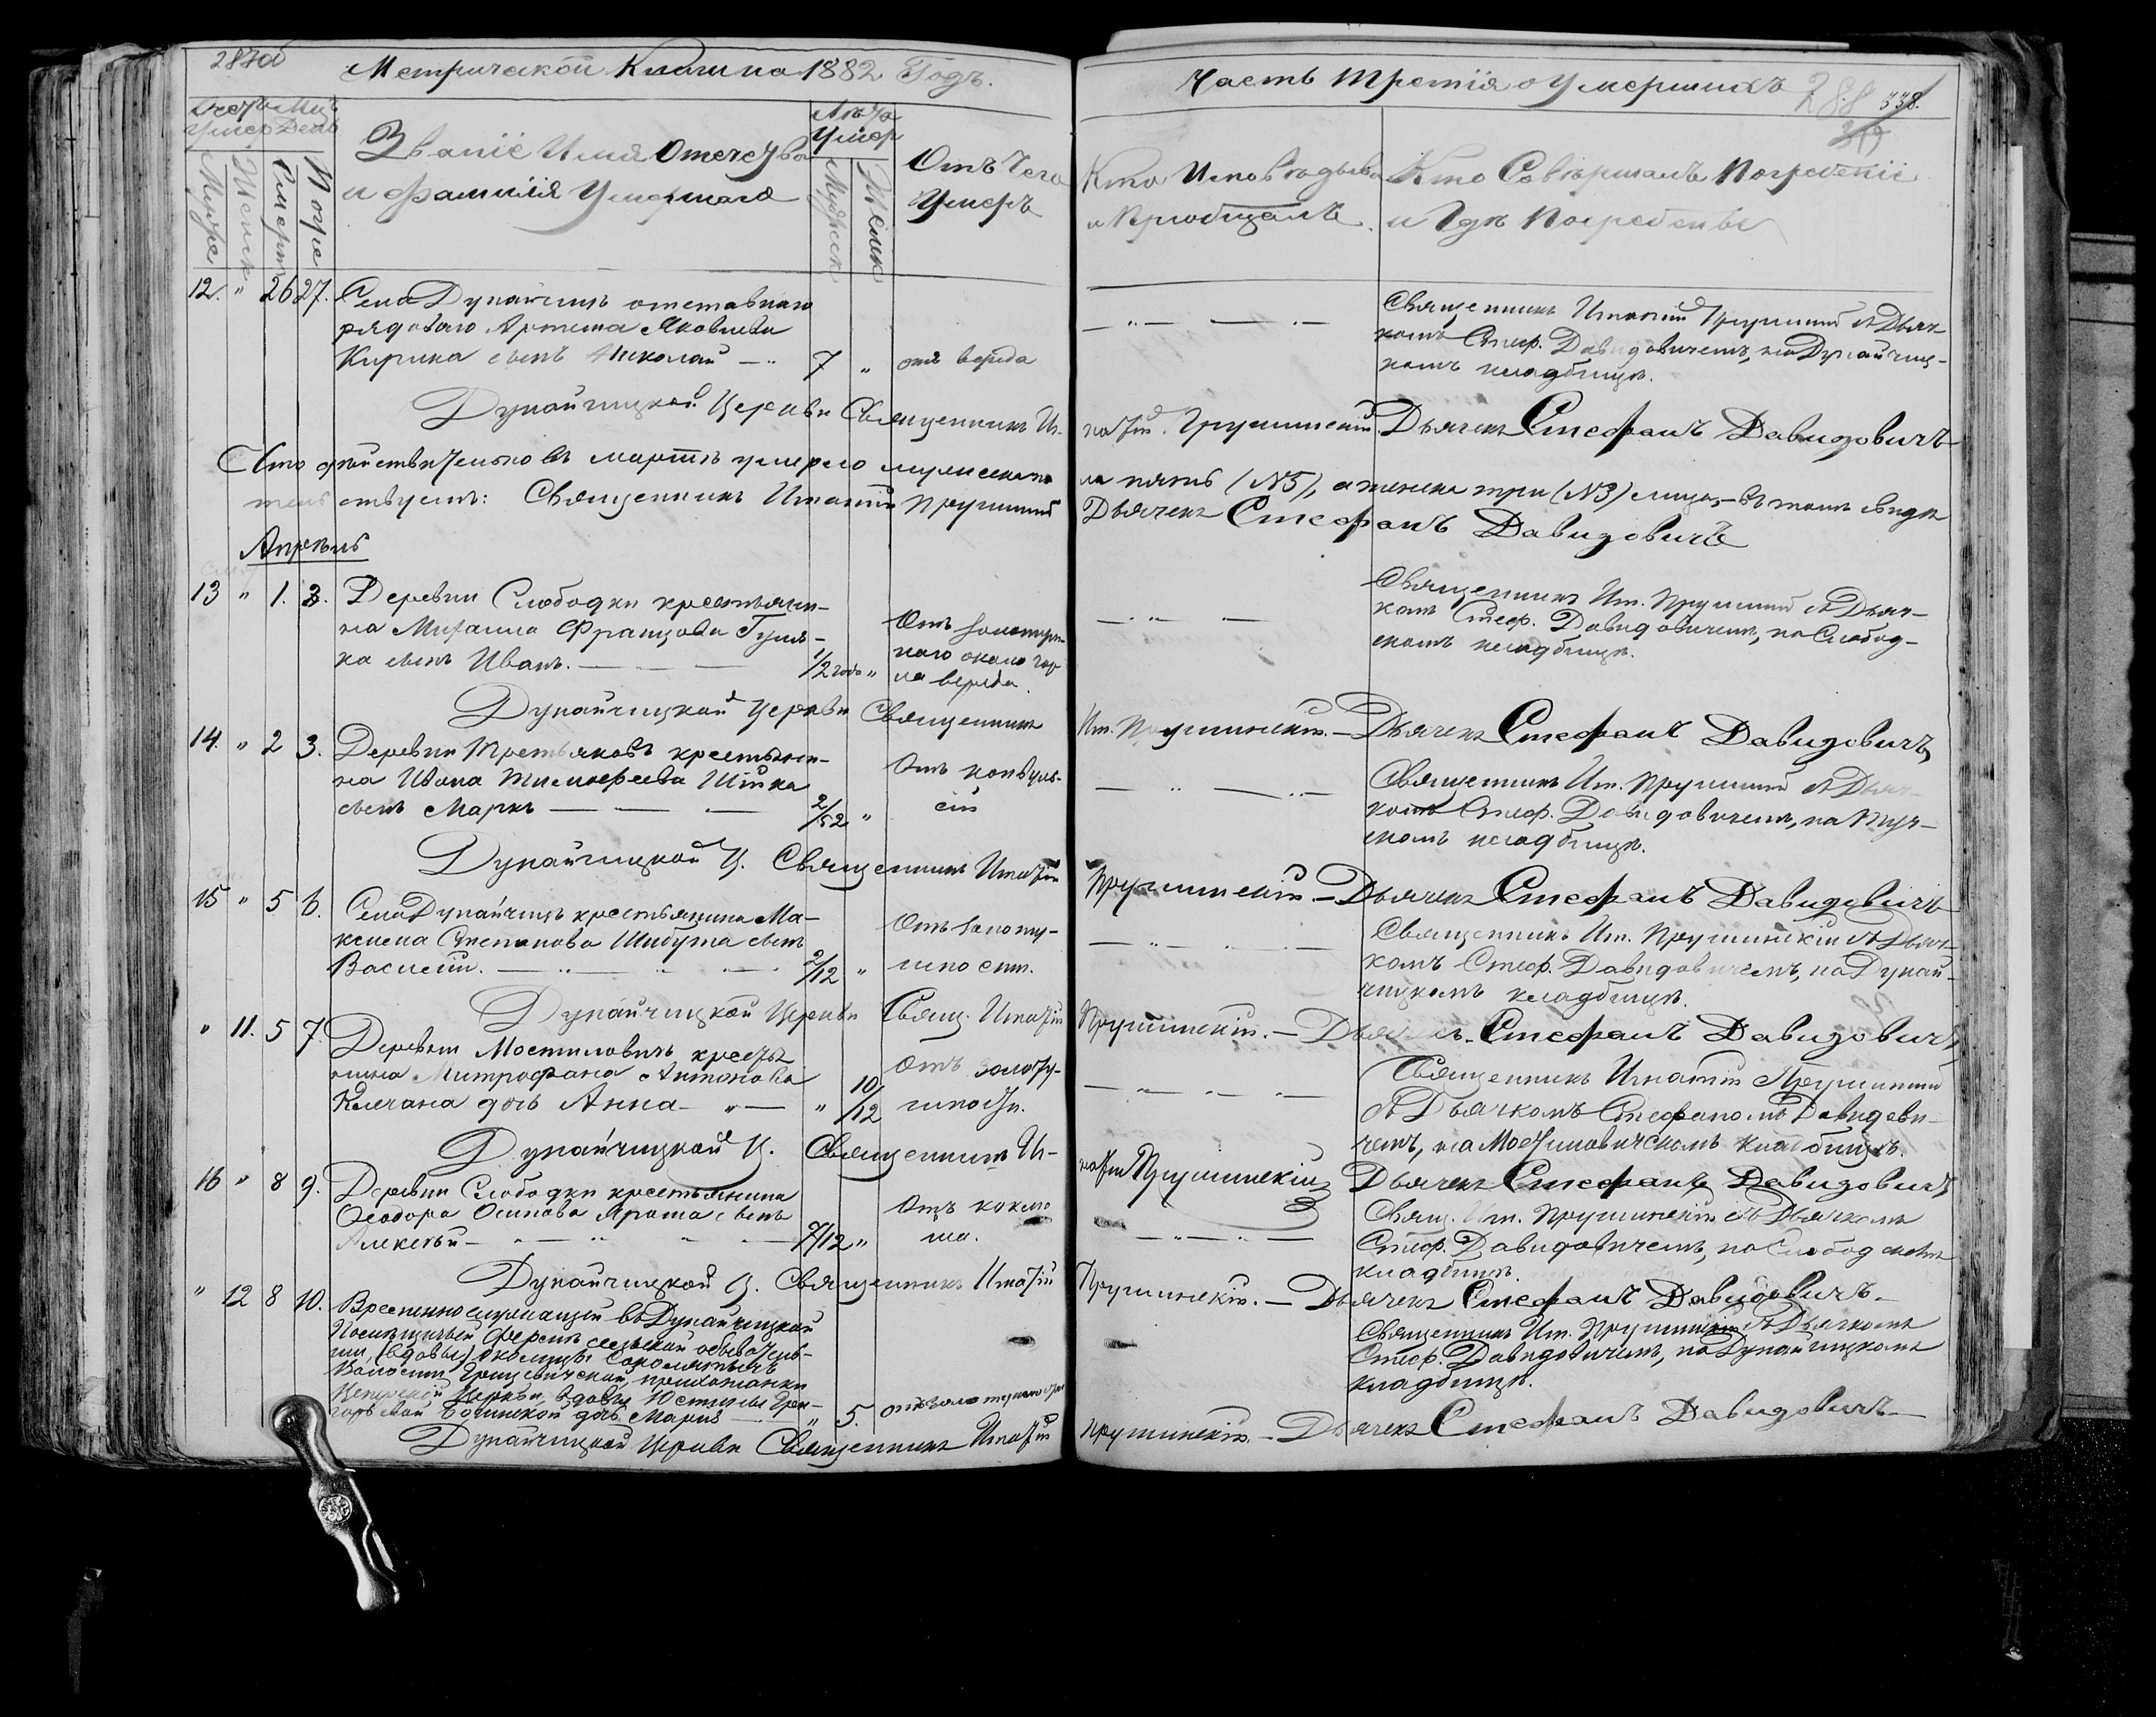 287об
Метрической Книги на 1882 Годъ.
Часть третія о Умершихъ
288 338.
Счетъ Умер Мцъ День
Муже Женск Смерт Погре
Званіе Имя Отечество
и фамилія Умершаго
Лѣта Умер
Мужеск Женск
Отъ Чего
Умеръ
Кто Исповѣдывалъ
и Пріобщалъ.
Кто Совершалъ Погребеніе
и Гдѣ Погребены
12. " 26 27. Села Дунайчицъ отставнаго
рядоваго Артема Яковлева
Кирика сынъ Николай — 7 " отъ вереда
Священникъ Игнатій Прушинскій съ Дьяч-
комъ Стеф. Давидовичемъ, на Дунайчиц-
комъ кладбищѣ.
Дунайчицкой Церкви Священникъ Иг-
натій Прушинскій. Дьячекъ Стефанъ Давидовичъ
Что дѣйствительно въ мартѣ умерло мужеска по
ла пять (№5), а женска три (№3) лица, — въ томъ свидѣ
тельствуемъ: Священникъ Игнатій Прушинскій
Дьячекъ Стефанъ Давидовичъ
Апрѣль
13 " 1. 3. Деревни Слободки крестьяни-
на Михаила Францова
ка сынъ Иванъ. — 1/2 года "
Отъ золотуш-
наго около гор
ла вереда.
Священникъ Игн. Прушинскій съ Дьяч-
комъ Стеф. Давидовичемъ, на Слобод-
скомъ кладбищѣ.
Дунайчицкой Церкви Священникъ
Игн. Прушинскій. — Дьячекъ Стефанъ Давидовичъ,
14. " 2 3. Деревни Третьяковъ крестьяни-
на Ивана Тимофеева Шпика
сынъ Маркъ — 2/52 "
Отъ конвуль-
сій
Священникъ Игн. Прушинскій съ Дьяч-
комъ Стеф. Давидовичемъ, на
скомъ кладбищѣ.
Дунайчицкой Ц. Священникъ Игнатій
Прушинскій. — Дьячекъ Стефанъ Давидовичъ
15 " 5 6. Села Дунайчицъ крестьянина Ма-
ксима Степанова Шибута сынъ
Василій. — 2/12 "
Отъ золоту-
шности.
Священникъ Игн. Прушинскій съ Дьяч-
комъ Стеф. Давидовичемъ, на Дунай-
чицкомъ кладбищѣ.
Дунайчицкой Церкви Свящ. Игнатій
Прушинскій. — Дьячекъ. Стефанъ Давидовичъ,
" 11. 5 7. Деревни Мостиловичъ кресть
нина Митрофана Антонова
Клечана дочь Анна — " 10/12
Отъ золоту-
шности.
Священникъ Игнатій Прушинскій
съ Дьячкомъ Стефаномъ Давидови-
чемъ, на Мостиловичскомъ кладбищѣ.
Дунайчицкой Ц. Священникъ Иг-
натій Прушинскій Дьячекъ Стефанъ Давидовичъ
16 " 8 9. Деревни Слободки крестьянина
Ѳеодора Осипова Ярота сынъ
Алексѣй — 7/12 "
Отъ коклю
ша.
Свящ. Игн. Прушинскій съ Дьячкомъ
Стеф. Давидовичемъ, на Слободскомъ
кладбищѣ.
Дунайчицкой Ц. Священникъ Игнатій
Прушинскій. — Дьячекъ Стефанъ Давидовичъ. —
" 12 8 10. Временно служащей въ Дунайчицкой
Помѣщичьей Фермѣ сельской обыватель-
ни, (вдовы) околицы
Волости Грицевичской, прихожанки
Церкви, вдовы Юстины Гри-
горьевой дочь Марія — " 5.
отъ золотушности
Священникъ Игн. Прушинскій съ Дьячкомъ
Стеф. Давидовичемъ, на Дунайчицкомъ
кладбищѣ.
Дунайчицкой Церкви Священникъ Игнатій
Прушинскій. — Дьячекъ Стефанъ Давидовичъ —